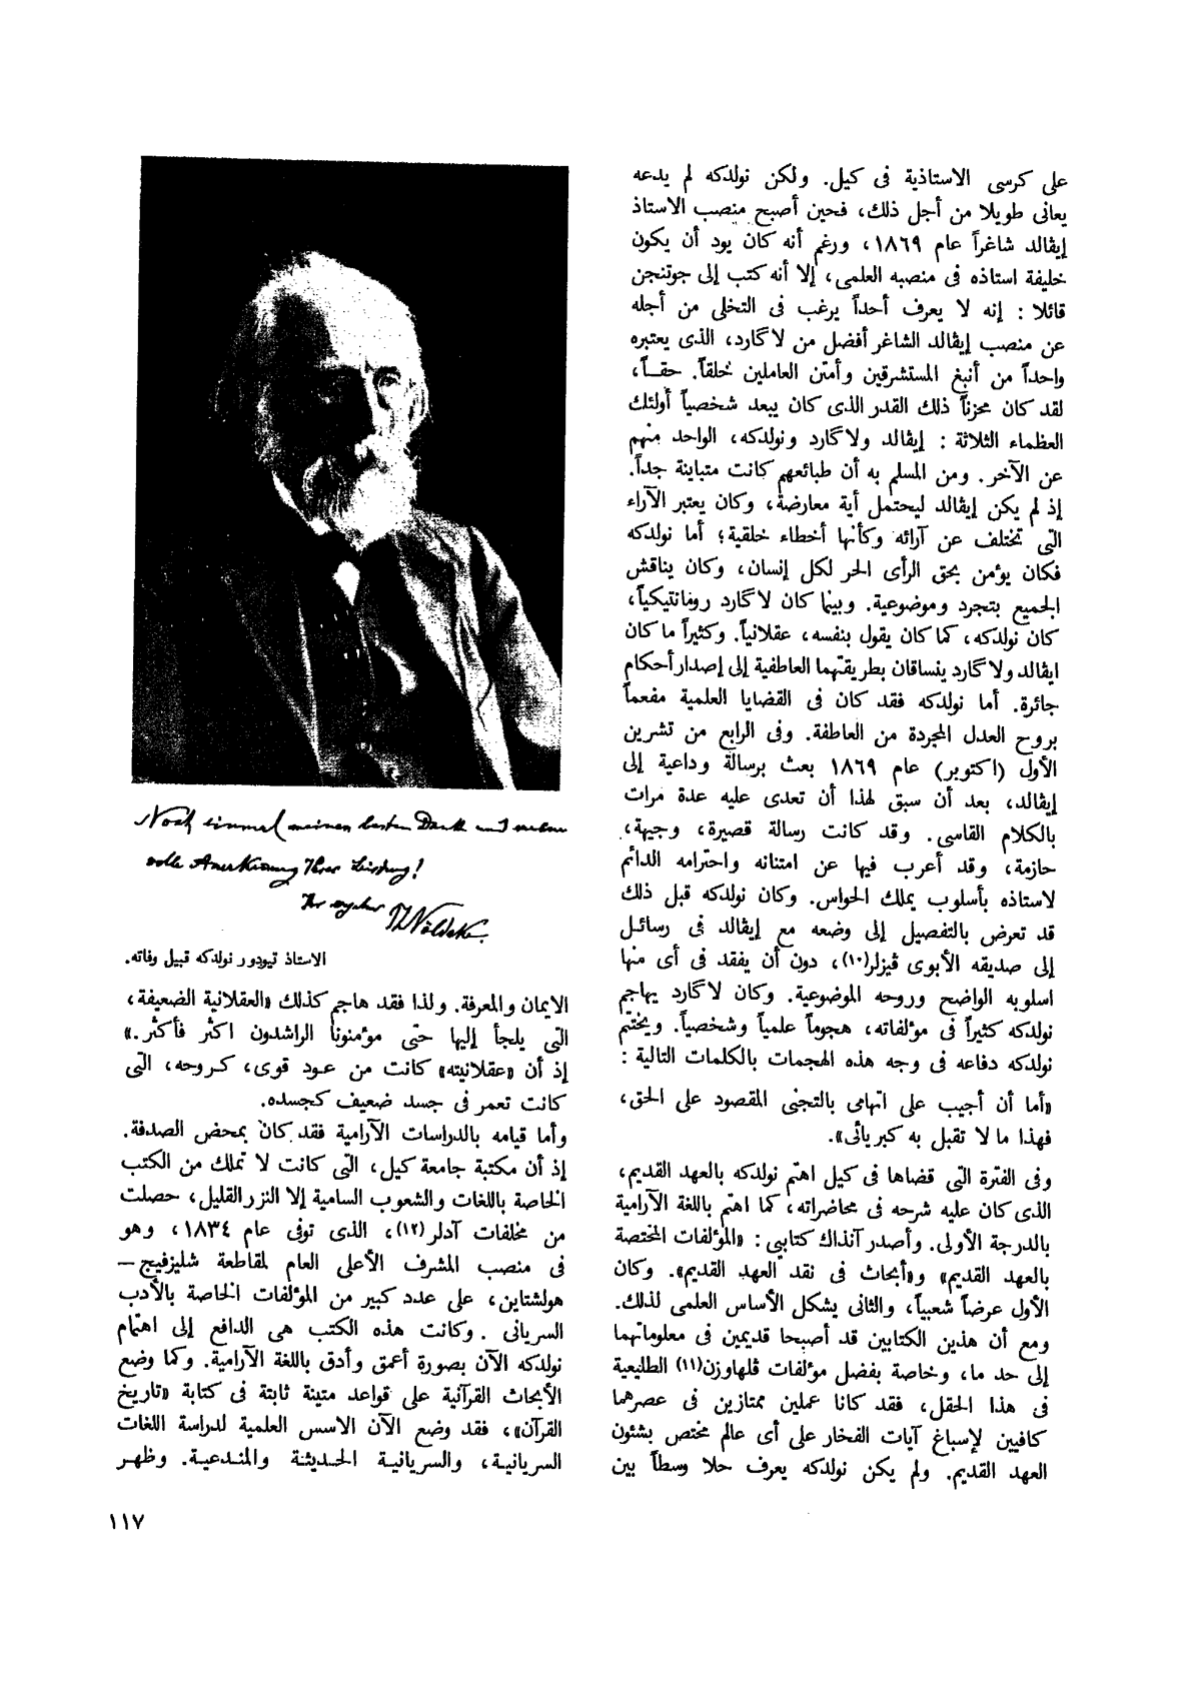 على كرسى الاستاذية فى كيل. ولكن نولدكه لم يدعه
يعانى طويلا من أجل ذلك، فحين أصبح منصب الاستاذ
إيڤالد شاغراً عام ١٨٦٩، ورغم أنه كان يود أن يكون
خليفة استاذه فى منصبه العلمى، إلا أنه كتب إلى جوتنجن
قائلا : إنه لا يعرف أحداً يرغب فى التخلى من أجله
عن منصب إيڤالد الشاغر أفضل من لاگارد، الذى يعتبره
واحداً من أنبغ المستشرقين وأمتن العاملين خلقاً. حقـاً،
لقد كان محزناً ذلك القدر الذى كان يبعد شخصياً أولئك
العظماء الثلاثة : إيڤالد ولاگارد ونولدكه، الواحد منهم
عن الآخر. ومن المسلم به أن طبائعهم كانت متباينة جداً.
إذ لم يكن إيڤالد ليحتمل أية معارضة، وكان يعتبر الآراء
التى تختلف عن آرائه وكأنها أخطاء خلقية؛ أما نولدكه
فكان يؤمن بحق الرأى الحر لكل إنسان، وكان يناقش
الجميع بتجرد وموضوعية. وبينما كان لاگارد رومانتيكياً،
كان نولدكه، كما كان يقول بنفسه، عقلانياً. وكثيراً ما كان
ايڤالد ولاگارد ينساقان بطريقتهما العاطفية إلى إصدار أحكام
جائرة. أما نولدكه فقد كان فى القضايا العلمية مفعماً
بروح العدل المجردة من العاطفة. وفى الرابع من تشرين
الأول (اكتوبر) عام ١٨٦٩ بعث برسالة وداعية إلى
إيڤالد، بعد أن سبق لهذا أن تعدى عليه عدة مرات
بالكلام القاسى. وقد كانت رسالة قصيرة، وجيهة،
حازمة، وقد أعرب فيها عن امتنانه واحترامه الدائم
لاستاذه بأسلوب يملك الحواس. وكان نولدكه قبل ذلك
قد تعرض بالتفصيل إلى وضعه مع إيڤالد فى رسائل
إلى صديقه الأبوى ڤيزلر(١٠)، دون أن يفقد فى أى منها
اسلوبه الواضح وروحه الموضوعية. وكان لاگارد يهاجم
نولدكه كثيراً فى مؤلفاته، هجوماً علمياً وشخصياً. ويختتم
نولدكه دفاعه فى وجه هذه الهجمات بالكلمات التالية :
«أما أن أجيب على اتهامى بالتجنى المقصود على الحق،
فهذا ما لا تقبل به كبريائى».
وفى الفترة التى قضاها فى كيل اهتم نولدكه بالعهد القديم،
الذى كان عليه شرحه فى محاضراته، كما اهتم باللغة الآرامية
بالدرجة الأولى. وأصدر آنذاك كتابيى : «المؤلفات المختصة
بالعهد القديم» و«أبحاث فى نقد العهد القديم». وكان
الأول عرضاً شعبياً، والثانى يشكل الأساس العلمى لذلك.
ومع أن هذين الكتابين قد أصبحا قديمين فى معلوماتهما
إلى حد ما، وخاصة بفضل مؤلفات ڤلهاوزن(١١) الطليعية
فى هذا الحقل، فقد كانا عملين ممتازين فى عصرهما
كافيين لإسباغ آيات الفخار على أى عالم مختص بشئون
العهد القديم. ولم يكن نولدكه يعرف حلا وسطاً بين
Noch einmal meinen besten Dank und meine
volle Anerkennung Ihrer Leistung!
Ihr ergebner Th Nöldeke.
الاستاذ تيودور نولدكه قبيل وفاته.
الايمان والمعرفة. ولذا فقد هاجم كذلك «العقلانية الضعيفة،
التى يلجأ إليها حتى مؤمنونا الراشدون اكثر فأكثر.»
إذ أن «عقلانيته» كانت من عود قوى، كروحه، التى
كانت تعمر فى جسد ضعيف كجسده.
وأما قيامه بالدراسات الآرامية فقد كان بمحض الصدفة.
إذ أن مكتبة جامعة كيل، التى كانت لا تملك من الكتب
الخاصة باللغات والشعوب السامية إلا النزر القليل، حصلت
من مخلفات آدلر(١٢)، الذى توفى عام ١٨٣٤، وهو
فى منصب المشرف الأعلى العام لمقاطعة شليزفيج –
هولشتاين، على عدد كبير من المؤلفات الخاصة بالأدب
السريانى . وكانت هذه الكتب هى الدافع إلى اهتمام
نولدكه الآن بصورة أعمق وأدق باللغة الآرامية. وكما وضع
الأبحاث القرآنية على قواعد متينة ثابتة فى كتابة «تاريخ
القرآن»، فقد وضع الآن الاسس العلمية لدراسة اللغات
السريانية، والسريانية الحديثة والمندعية. وظهر
١١٧